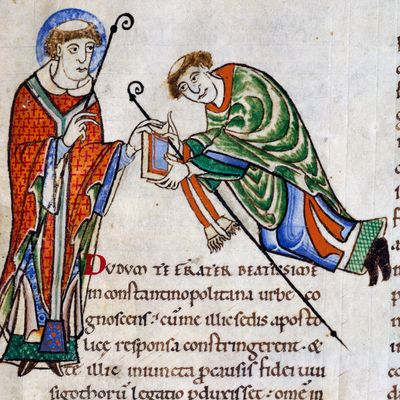 DUDUM TE FRATER BEATISSIME
in constantinopolitana urbe co
gnoscens. cū me illic sedis aposto
lice responsa constringerent. &
te illic iniuncta p̄ causis fidei uui
sigothorum legatio pduxisset. omē in